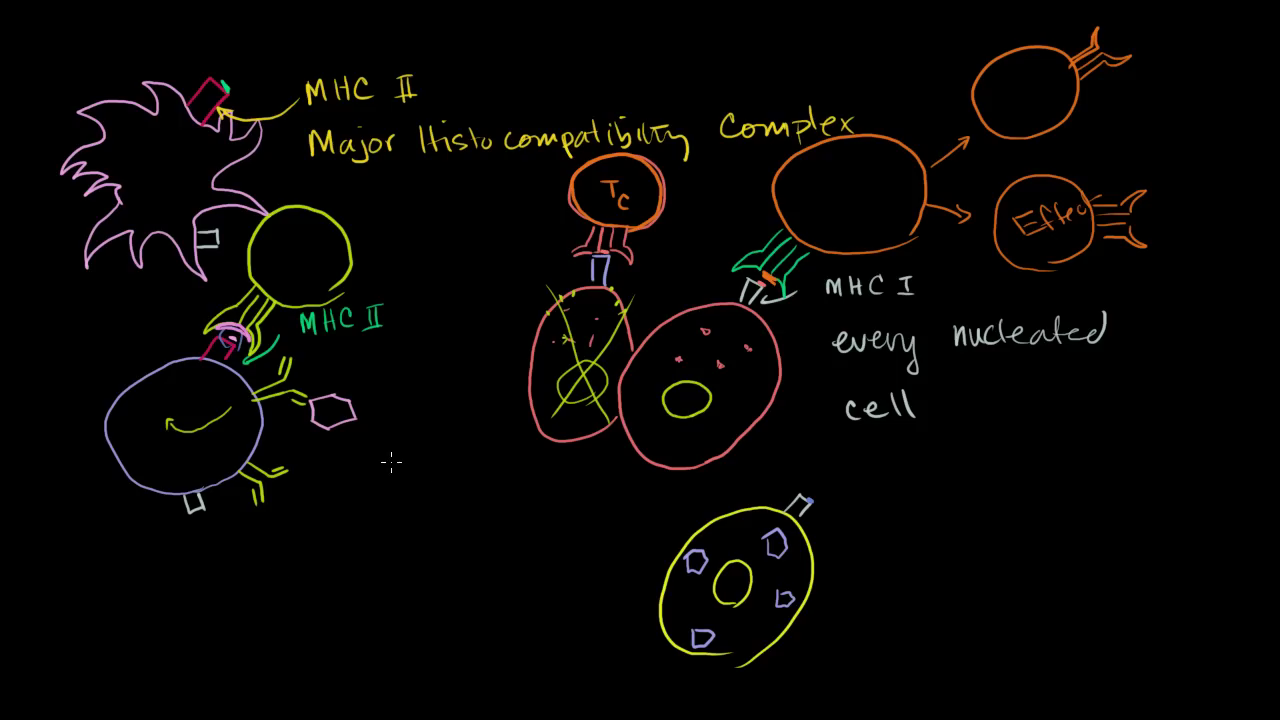 MHC II
Major Histocompatibility Complex
TC
Effec
MHC I
MHC II
every nucleated
cell